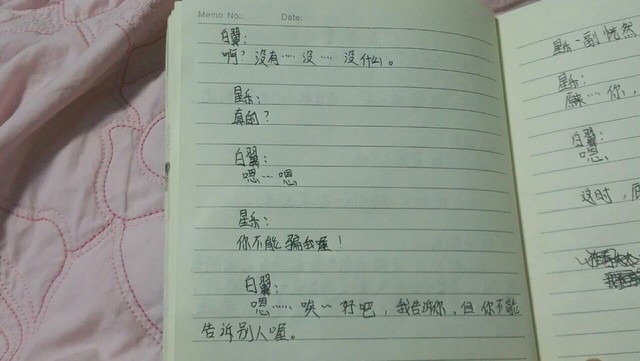 Memo No.:
Date:
白翼:
啊？没有……没……没什么。
星乐:
真的？
白翼:
嗯……嗯
星乐:
你不能骗我喔！
白翼:
嗯……唉~好吧，我告诉你，但你不能
告诉别人喔。
星乐一副恍然
星乐:
原来……你，
白翼:
嗯
这时，